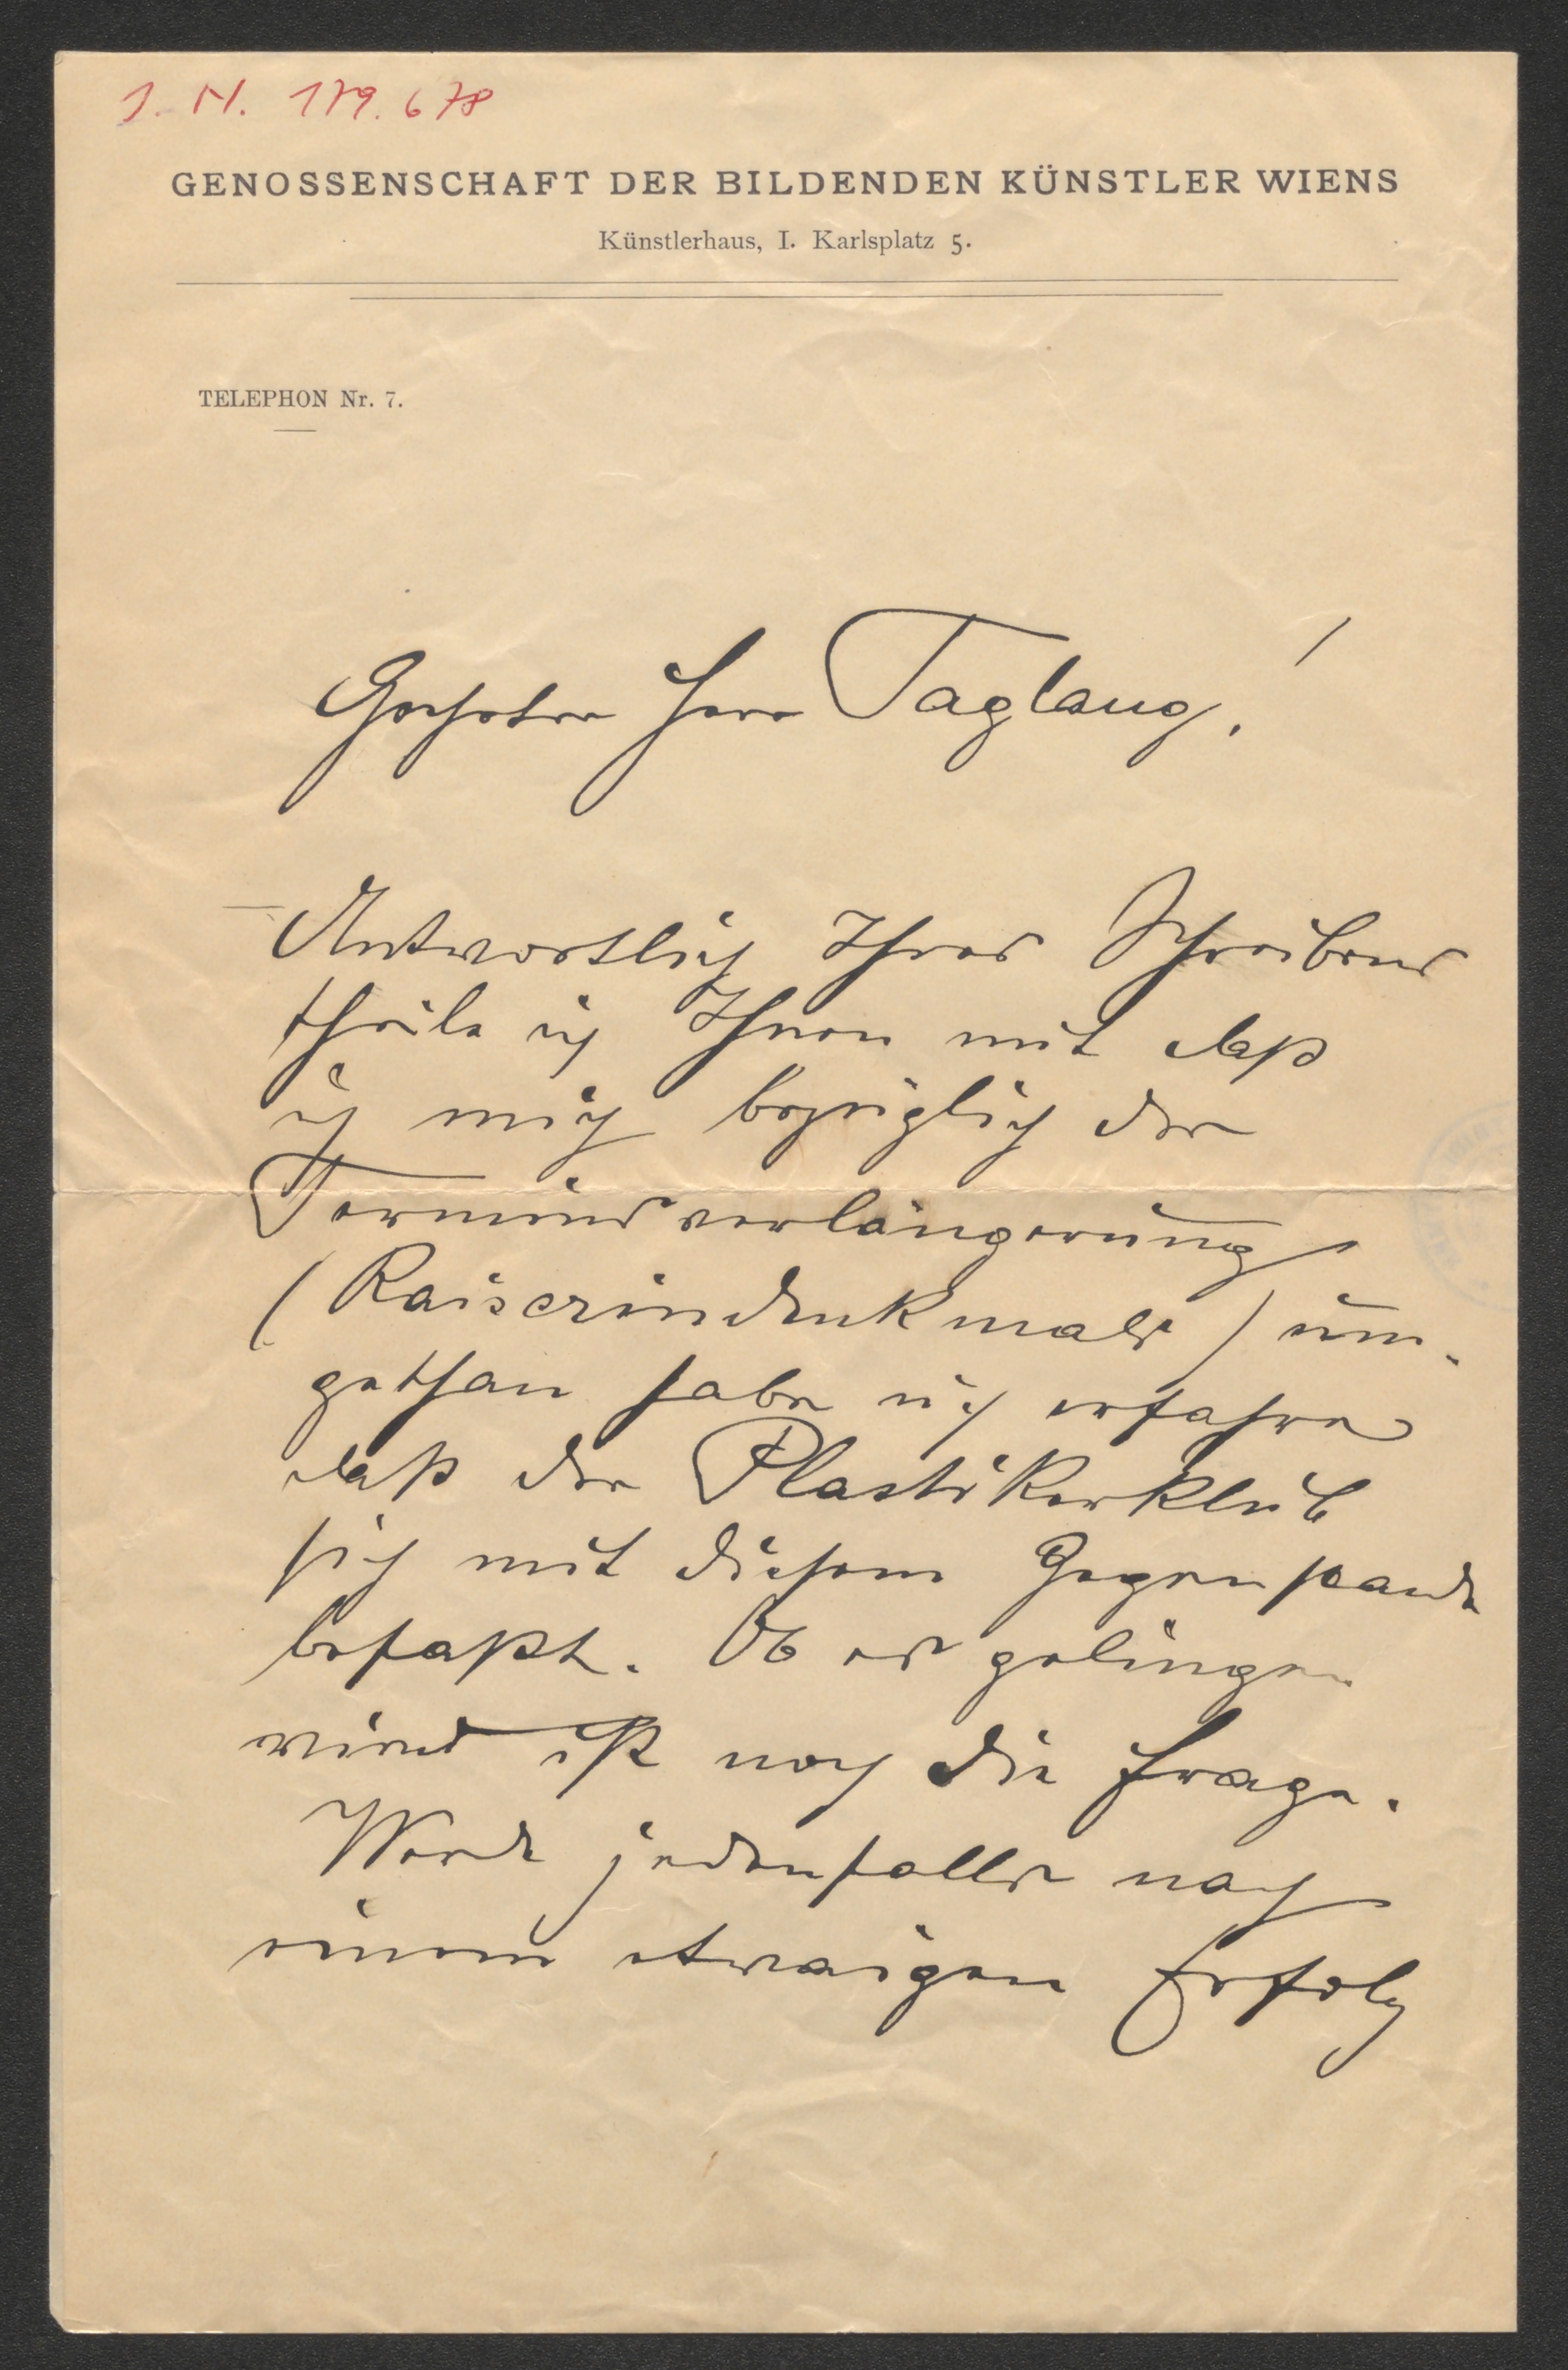 I. N. 179.678
GENOSSENSCHAFT DER BILDENDEN KÜNSTLER WIENS
Künstlerhaus, I. Karlsplatz 5.
TELEPHON Nr. 7.
Geehrter Herr Taglang!
Antwortlich Ihres Schreibens
theile ich Ihnen mit daß
ich mich bezüglich der
Terminsverlängerung
(Kaiserindenkmals) um-
gethan habe ich erfahre
daß der Plastikerklub
sich mit diesem Gegenstande
befaßt. Ob es gelingen
wird ist noch die Frage.
Werde jedenfalls nach
einem etwaigen Erfolg